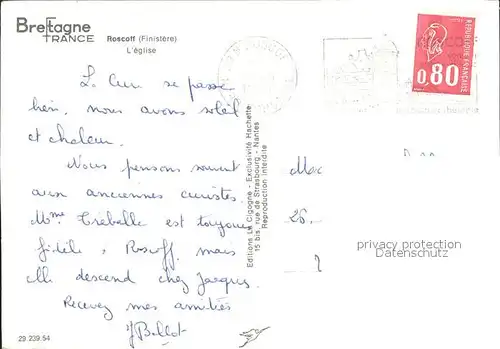 Bretagne
FRANCE
Roscoff (Finistère)
L'église
REPUBLIQUE FRANÇAISE
0,80
La cure se passe
bien, nous avons soleil
et chaleur.
Nous pensons souvent
aux anciennes curistes.
Mme Treballe est toujours
fidèle à Roscoff, mais
elle descend chez Jacques
Recevez mes amitiés
Editions La Cigogne - Exclusivité Hachette
15 bis, rue de Strasbourg - Nantes
Reproduction interdite
25
privacy protection
Datenschutz
29.239.54